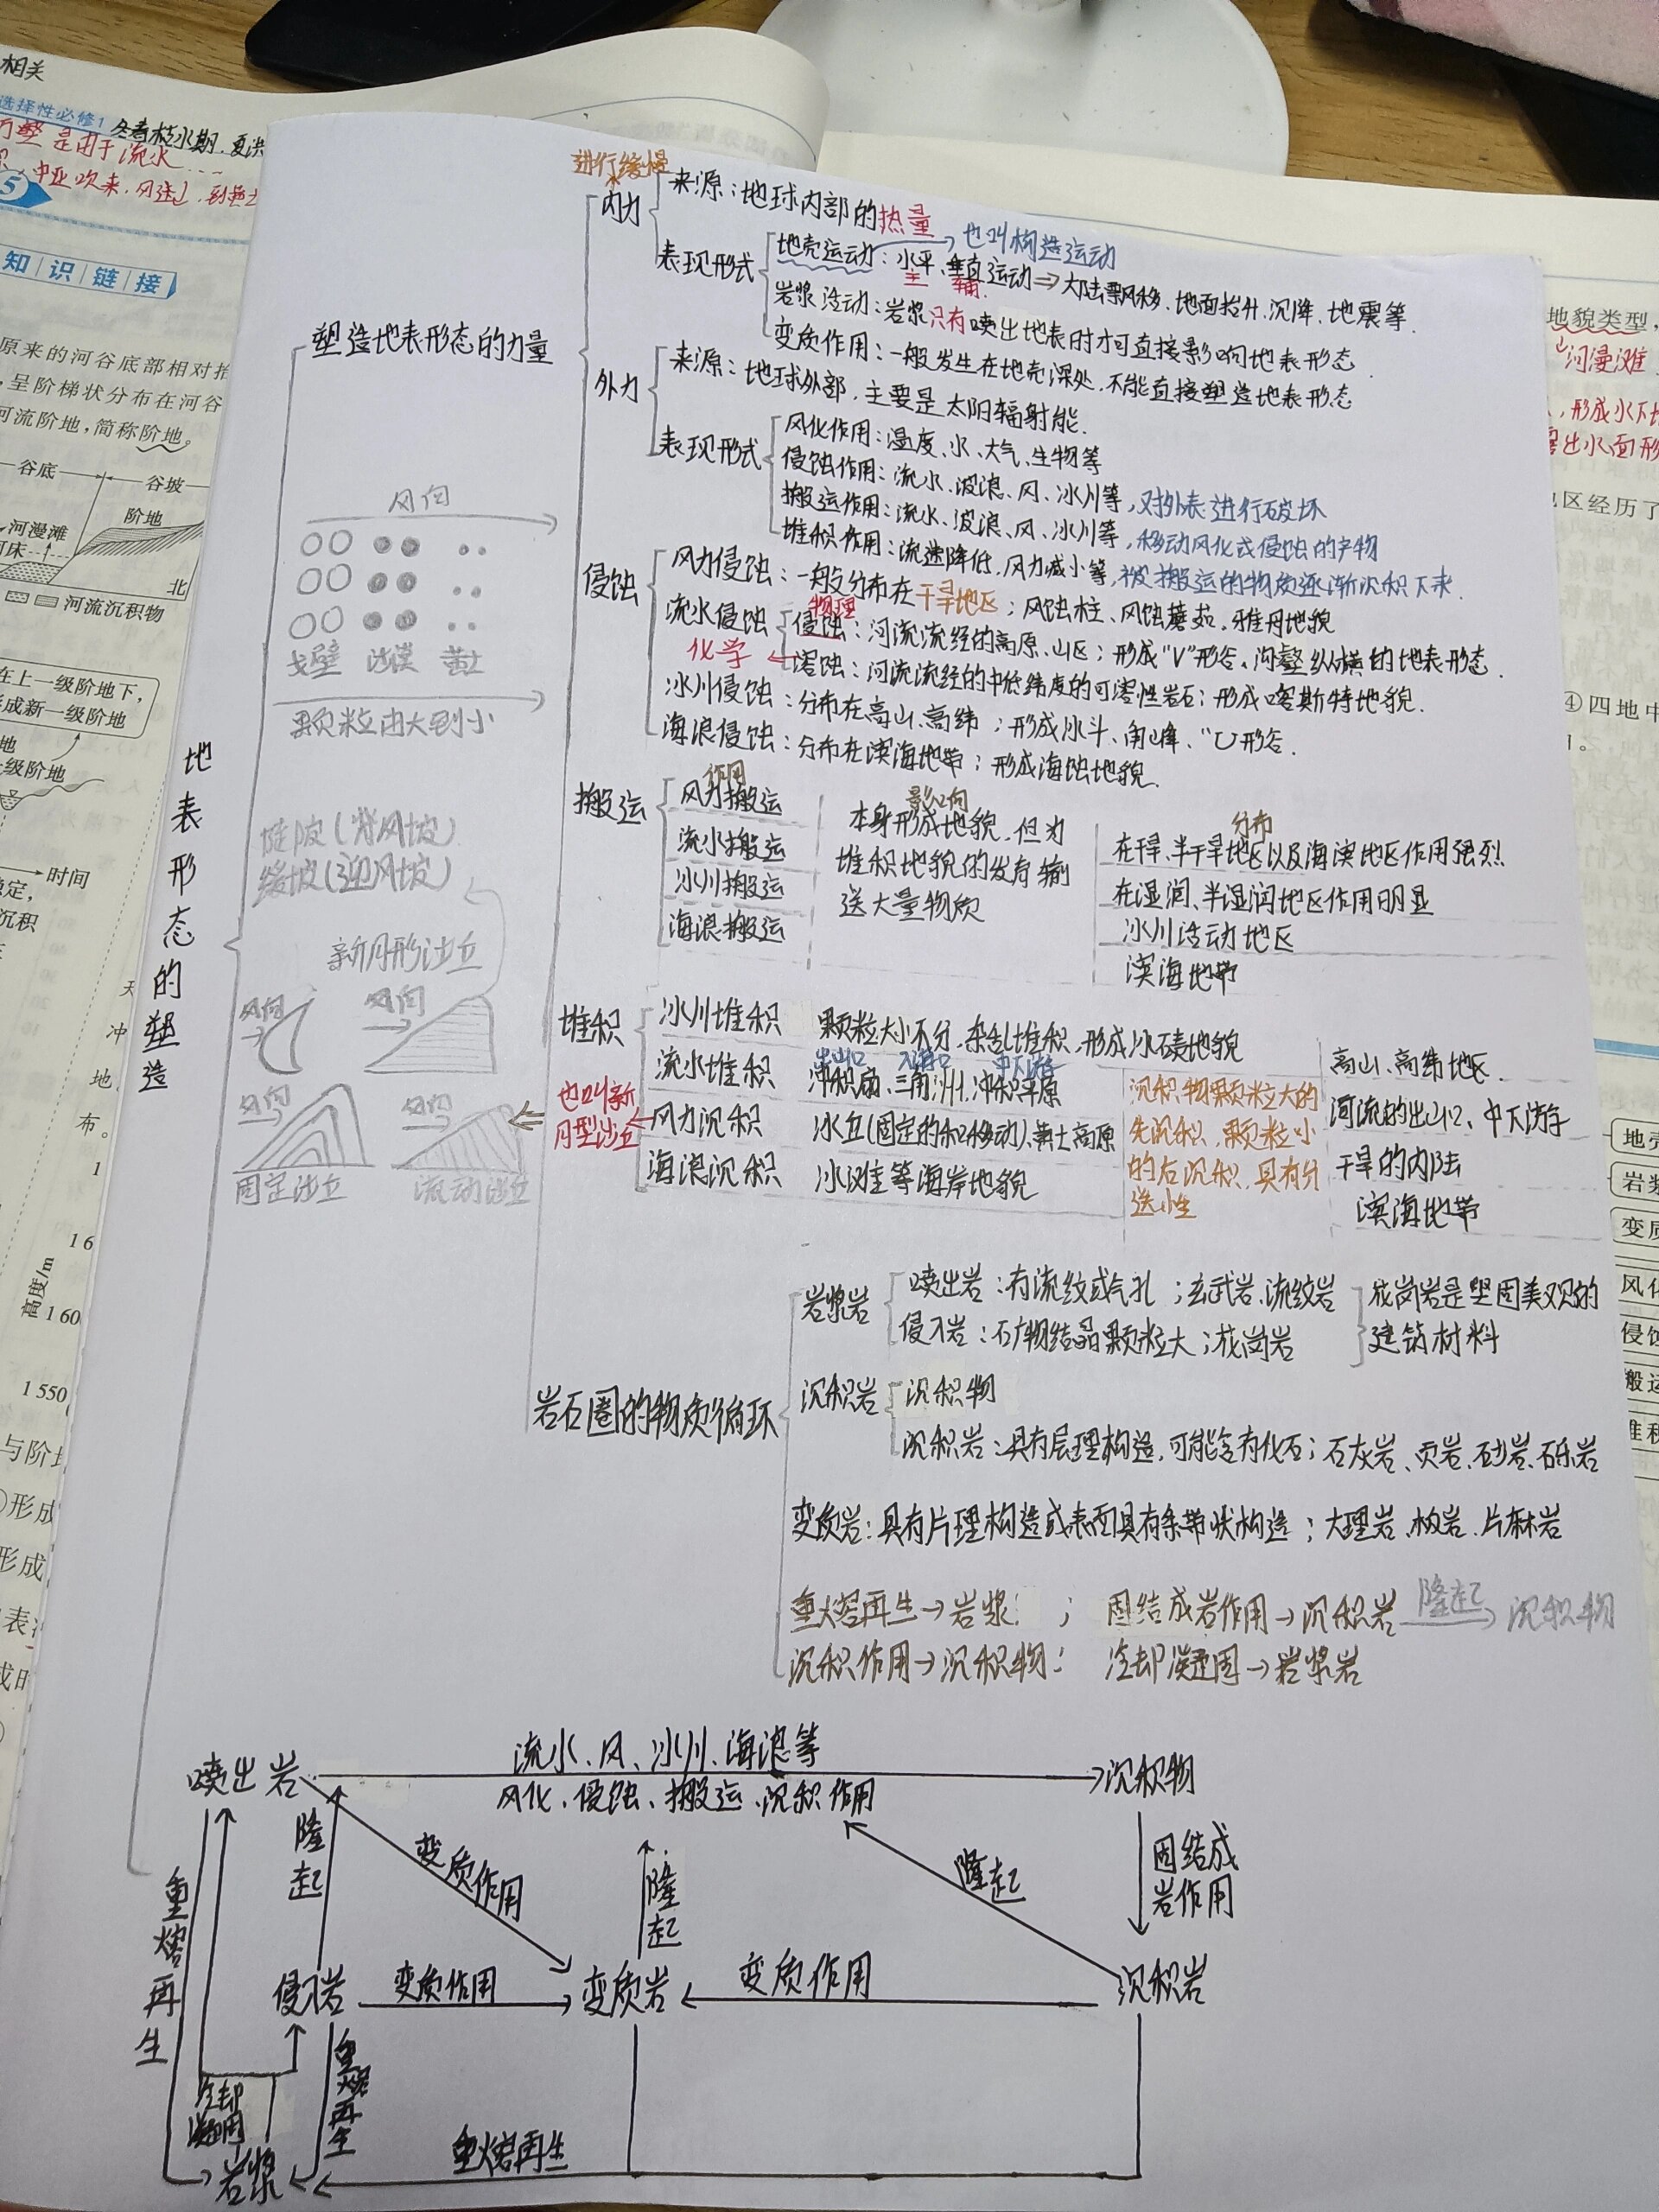 相关
选择性必修1 冬春枯水期.夏洪
万壑是由于流水
中亚吹来.风送
5
知识链接
原来的河谷底部相对抬
呈阶梯状分布在河谷
河流阶地,简称阶地。
谷底
谷坡
阶地
河漫滩
北
河流沉积物
在上一级阶地下,
形成新一级阶地
级阶地
时间
稳定,
沉积
天
冲
地
布。
1
16
高度/m
1 60
1 550
与阶地
形成
形成
地表形态的塑造
塑造地表形态的力量
进行缓慢
内力
来源:地球内部的热量
表现形式
地壳运动:水平、垂直运动⇒大陆漂移、地面抬升、沉降、地震等.
也叫构造运动
主 辅.
岩浆活动:岩浆只有喷出地表时才可直接影响地表形态.
变质作用:一般发生在地壳深处,不能直接塑造地表形态
外力
来源:地球外部,主要是太阳辐射能.
表现形式
风化作用:温度、水、大气、生物等
侵蚀作用:流水、波浪、风、冰川等,对外表进行破坏
搬运作用:流水、波浪、风、冰川等,移动风化或侵蚀的产物
堆积作用:流速降低,风力减小等,被搬运的物质逐渐沉积下来.
风向
戈壁 沙漠 黄土
颗粒由大到小
侵蚀
风力侵蚀:一般分布在干旱地区;风蚀柱、风蚀蘑菇、雅丹地貌
流水侵蚀
物理
侵蚀:河流流经的高原、山区;形成"V"形谷、沟壑纵横的地表形态.
化学←溶蚀:河流流经的中低纬度的可溶性岩石;形成喀斯特地貌.
冰川侵蚀:分布在高山、高纬;形成冰斗、角峰、"U形谷.
海浪侵蚀:分布在滨海地带;形成海蚀地貌.
搬运
作用 影响 分布
风力搬运
流水搬运
冰川搬运
海浪搬运
本身形成地貌,但为
堆积地貌的发育输
送大量物质
在干旱、半干旱地区以及海滨地区作用强烈
在湿润、半湿润地区作用明显
冰川活动地区
滨海地带
陡坡(背风坡)
缓坡(迎风坡)
新月形沙丘
风向 风向
风向 风向
固定沙丘 流动沙丘
堆积
冰川堆积 颗粒大小不分,杂乱堆积,形成冰碛地貌
高山、高纬地区.
出山口 入海口 中下游
流水堆积 冲积扇、三角洲、冲积平原
河流的出山口、中下游
也叫新
月型沙丘
风力沉积 沙丘(固定的和移动)、黄土高原
干旱的内陆
海浪沉积 沙滩等海岸地貌
滨海地带
沉积物颗粒大的
先沉积,颗粒小
的后沉积,具有分
选性
岩石圈的物质循环
岩浆岩
喷出岩:有流纹或气孔;玄武岩、流纹岩
侵入岩:矿物结晶颗粒大;花岗岩
花岗岩是坚固美观的
建筑材料
沉积岩
沉积物
沉积岩:具有层理构造,可能含有化石;石灰岩、页岩、砂岩、砾岩
变质岩:具有片理构造或表面具有条带状构造;大理岩、板岩、片麻岩
重熔再生→岩浆; 固结成岩作用→沉积岩 隆起→ 沉积物
沉积作用→沉积物: 冷却凝固→岩浆岩
流水、风、冰川、海浪等
喷出岩
沉积物
风化、侵蚀、搬运、沉积作用
隆起
变质作用
隆起
隆起
固结成
岩作用
重熔再生
侵入岩
变质作用
变质岩
变质作用
沉积岩
冷却
凝固
重熔再生
重熔再生
岩浆
地貌类型,
河漫滩
形成水下
出水面形
区经历了
④四地中
1。
地壳
岩浆
变质
风化
侵蚀
搬运
堆积